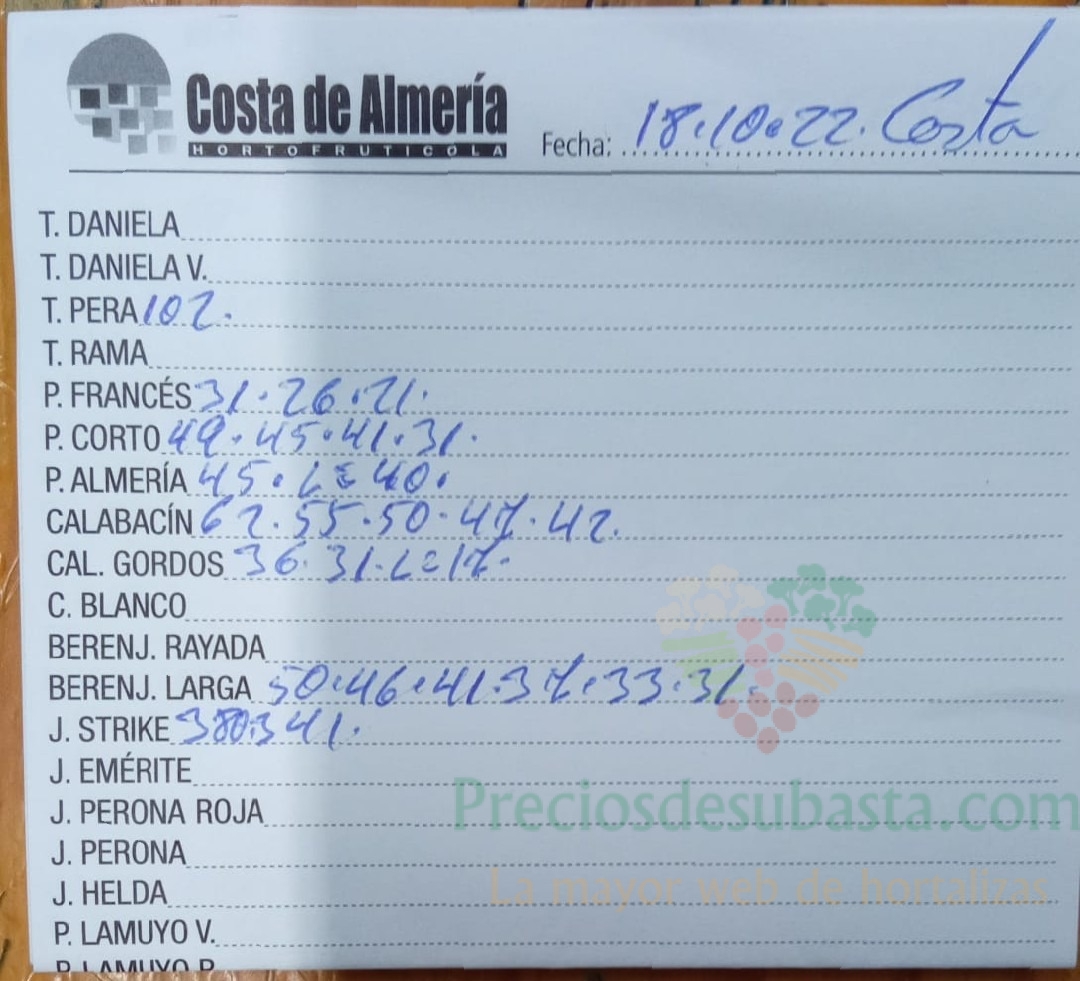 Costa de Almería
HORTOFRUTICOLA
Fecha: 18.10.22. Costa
T. DANIELA
T. DANIELA V.
T. PERA 102.
T. RAMA
P. FRANCÉS 31.26.21.
P. CORTO 49.45.41.31.
P. ALMERÍA 45. 40.
CALABACÍN 62.55.50.47.42.
CAL. GORDOS 36.31. 17.
C. BLANCO
BERENJ. RAYADA
BERENJ. LARGA 50.46.41.37.33.31.
J. STRIKE 380.341.
J. EMÉRITE
J. PERONA ROJA
J. PERONA
J. HELDA
P. LAMUYO V.
P. LAMUYO R.
Preciosdesubasta.com
La mayor web de hortalizas